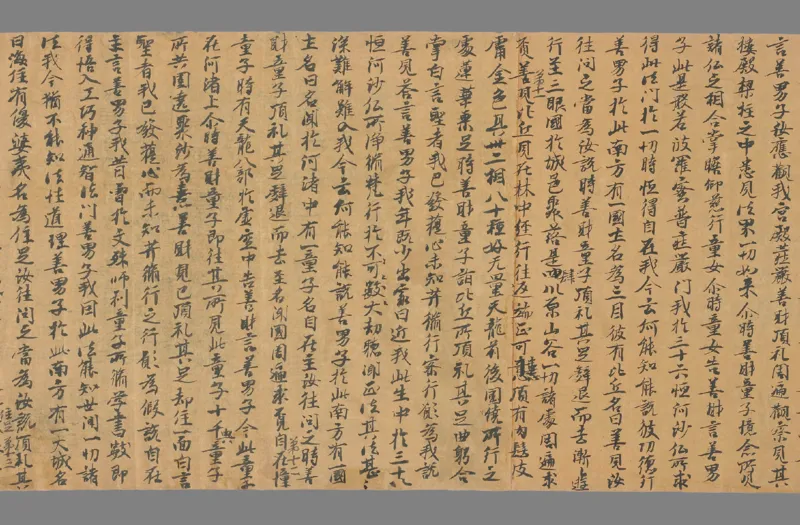 言善男子汝應觀我宮殿莊嚴善財頂礼周遍觀察見其
樓殿墻柱之中悉見法界一切如來尒時善財童子憶念所見
諸仏之相合掌瞻仰慈行童女尒時童女告善財言善男
子此是般若波羅蜜普莊嚴門我於三十六恒河沙仏所求
得此法門於一切時恒得自在我今云何能知能說彼功德行
善男子於此南方有一國土名為三目彼有比丘名曰善見汝
往問之當為汝說時善財童子頂礼其足辭退而去漸遊
行至三眼國於城邑聚落是曲川原山谷一切諸處周遍求
第十一
覓善見比丘見在林中經行往反端正可憙頂有肉髻皮
膚金色具卅二相八十種好无量天龍前後圍繞所行之
處蓮華承足時善財童子詣比丘所頂礼其足曲躬合
掌白言聖者我已發䒹心未知䒑脩行之行願為我說
善見答言善男子我年既少出家日近我此生中於三十八
恒河沙仏所淨脩梵行於不可數大劫聽聞正法其法甚
深難解難入我今云何能知能說善男子於此南方有一國
土名曰名聞於河渚中有一童子名自在主汝往問之時善
財童子頂礼其足辭退而去至名聞國周遍求覓自在
第十二
童子時有天龍八部於虛空中告善財言善男子今此童子
在河渚上尒時善財童子即往其所見此童子十千童子
所共圍遶聚沙為憙善財見已頂礼其足却住一面白言
聖者我已發䒹心而未知䒑脩行之行願為假說自在
主言善男子我昔曾於文殊師利童子所脩學書數即
得悟入工巧神通智法門善男子我因此法能知世間一切諸
法我今猶不能知法性道理善男子於此南方有一大城名
曰海住有優婆夷名為住足汝往問之當為汝說頂礼其